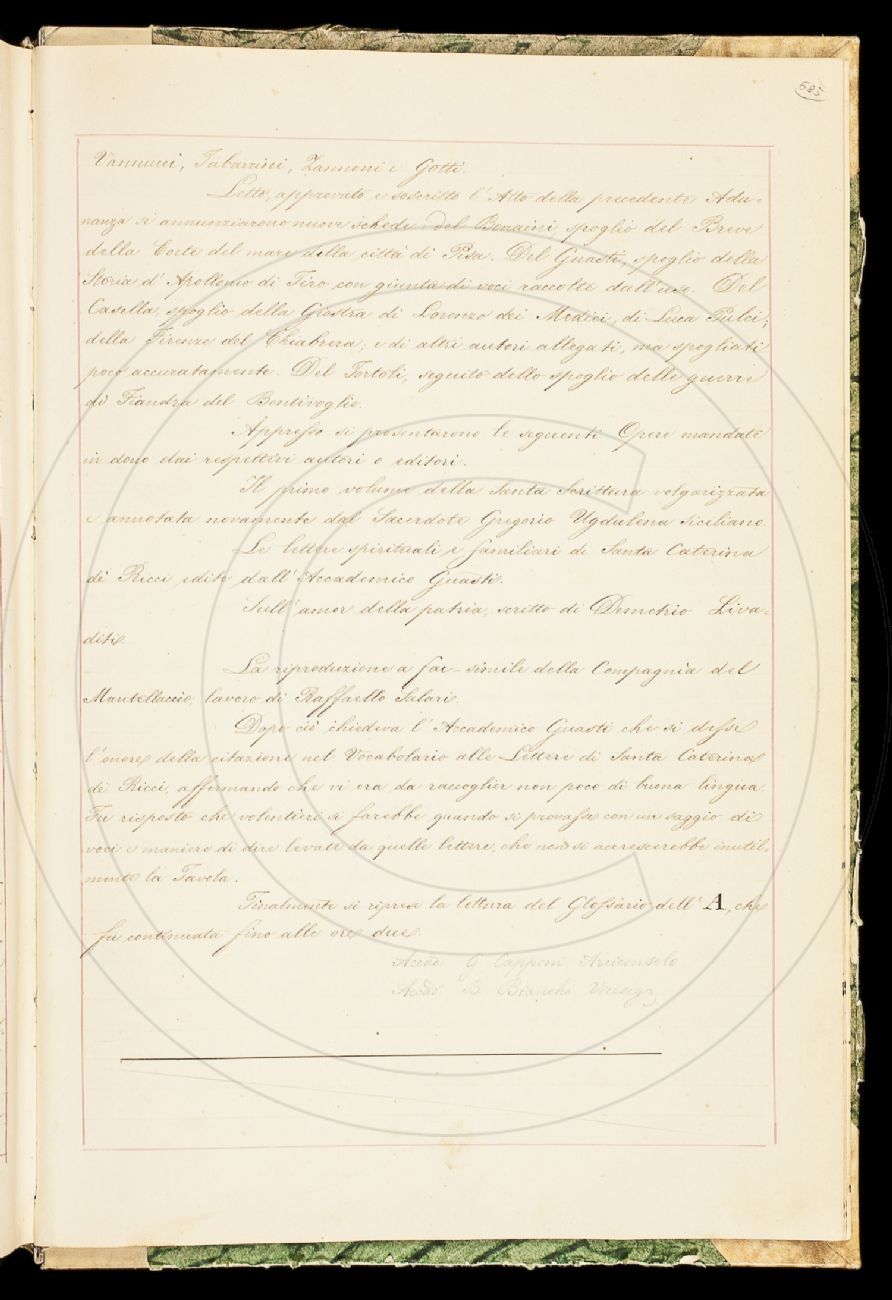 685
Vannucci, Tabarrini, Zannoni e Gotti.
Letto, approvato e soscritto l'Atto della precedente Adu-
nanza si annunziarono nuove schede: del Bonaini spoglio del Breve
della Corte del mare della città di Pisa. Del Guasti, spoglio della
Storia d'Apollonio di Tiro con giunta di voci raccolte dall'uso. Del
Casella, spoglio della Giostra di Lorenzo dei Medici, di Luca Pulci;
della Firenze del Chiabrera; e di altri autori allegati, ma spogliati
poco accuratamente. Del Tortoli, seguito dello spoglio delle guerre
di Fiandra del Bentivoglio.
Appresso si presentarono le seguenti Opere mandate
in dono dai respettivi autori o editori.
Il primo volume della Santa Scrittura volgarizzata
e annotata novamente dal Sacerdote Gregorio Ugdulena Siciliano.
Le lettere spirituali e familiari di Santa Caterina
de' Ricci edite dall'Accademico Guasti.
Sull'amor della patria, scritto di Demetrio Liva-
ditis
La riproduzione a fac-simile della Compagnia del
Mantellaccio, lavoro di Raffaello Salari.
Dopo ciò chiedeva l'Accademico Guasti che si desse
l'onore della citazione nel Vocabolario alle Lettere di Santa Caterina
de' Ricci, affermando che vi era da raccoglier non poco di buona lingua.
Fu risposto che volentieri si farebbe quando si provasse con un saggio di
voci e maniere di dire levate da quelle lettere, che non si accrescerebbe inutil-
mente la Tavola.
Finalmente si riprese la lettura del Glossario dell'A, che
fu continuata fino alle ore due.
Accad. G. Capponi Arciconsolo
Accad. B. Bianchi Viceseg.